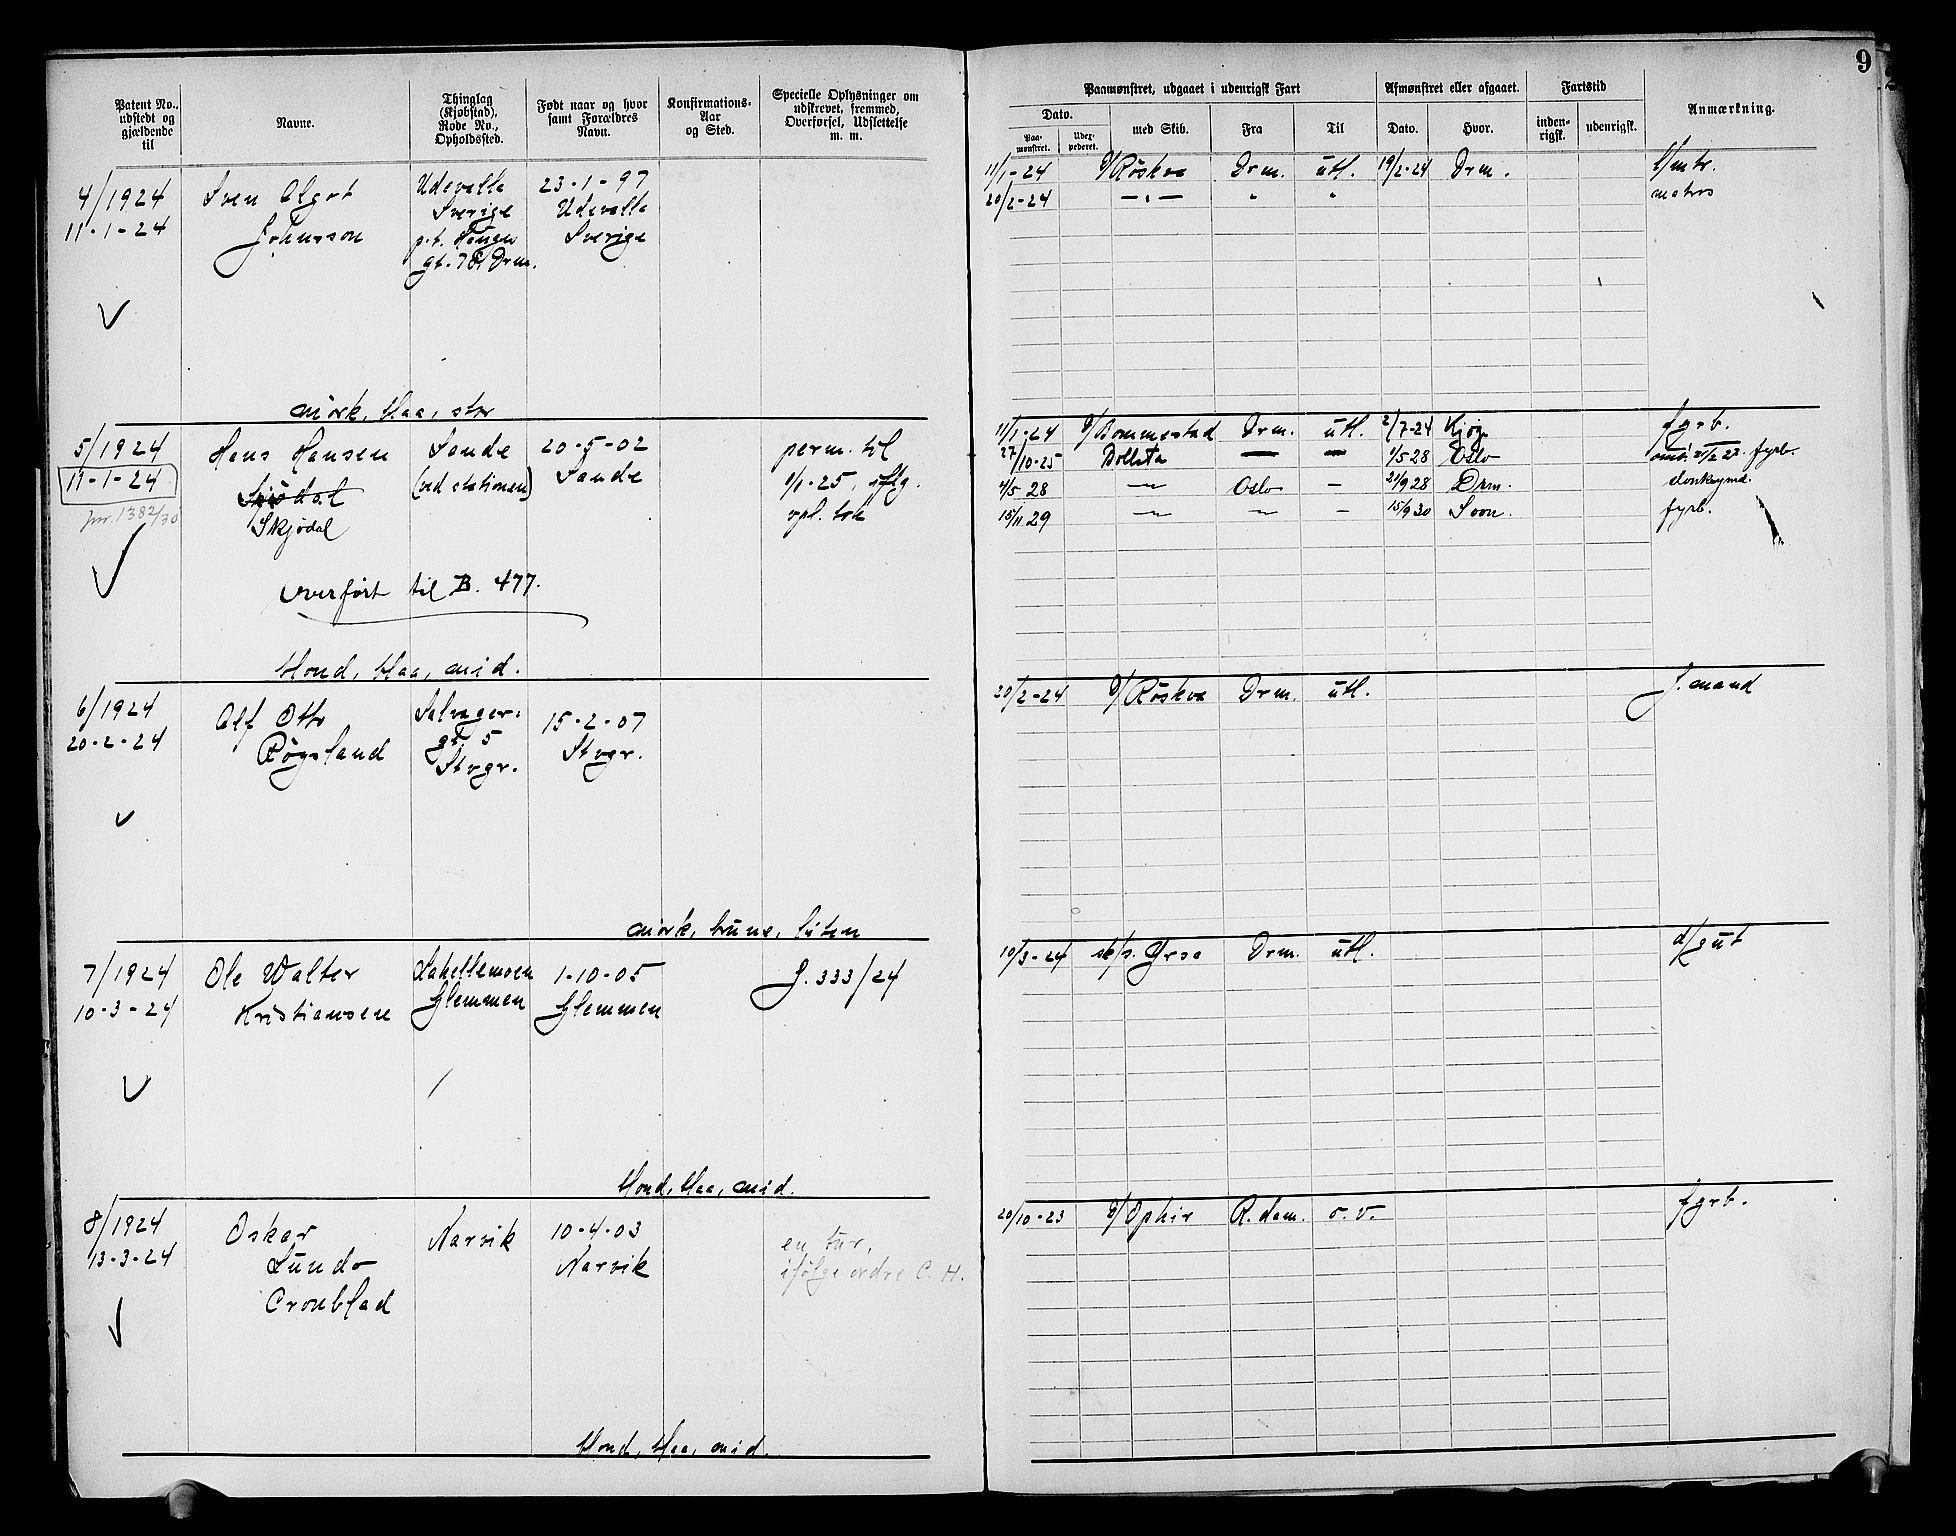 9
Patent No., udstedt og gjældende til
Navne.
Thinglag (Kjøbstad), Rode No., Opholdssted.
Født naar og hvor samt Forældres Navn.
Konfirmations-Aar og Sted.
Specielle Oplysninger om udskrevet, fremmed, Overførsel, Udslettelse m. m.
Paamønstret, udgaaet i udenrigsk Fart
Afmønstret eller afgaaet.
Fartstid
Anmærkning.
Dato.
med Skib.
Fra
Til
Dato.
Hvor.
inden-rigsk.
udenrigsk.
Paa-mønstret.
Udex-pederet.
4/1924
11-1-24
Sven Algot
Johnsson
Udevalla
Sverige
p.t. Haugen
gt. 78 Drm.
23-1-97
Udevalla
Sverige
11/1-24 D/Røskva Drm. utl. 19/2-24 Drm. l/mtr.
20/2-24 — " — " " matros
mørk, blaa, stor
5/1924
11-1-24
jnr. 1382/30
Hans Hansen
Skjødal
Sande
(ved stationen)
20-5-02
Sande
perm. til
1/1-25, iflg.
opl. bok
overført til B. 477.
11/1-24 D/Bommestad Drm. utl. 2/7-24 Kjøg. fyrb.
27/10-25 Bollsta — — 1/5 28 Oslo fyrb.
4/5 28 — " — Oslo - 21/9 28 Drm. donkeymd.
15/11 29 — " — — " — - 15/9 30 Soon. fyrb.
blond, blaa, mid.
6/1924
20-2-24
Alf Otto
Røgsland
gt. 5
Stvgr.
15-2-07
Stvgr.
20/2-24 D/Røskva Drm. utl. j.mand
mørk, brune, liten
7/1924
10-3-24
Ole Walter
Kristiansen
Glemmen
1-10-05
Glemmen
J. 333/24
10/3-24 sk/s. Yrsa Drm. utl. d/gut
blond, blaa, mid.
8/1924
13-3-24
Oskar
Lundo
Cronblad
Narvik
10-4-03
Narvik
en tur,
ifølge ordre C. H.
20/10-23 D/Ophir R.dam. o.v. fyrb.
blond, blaa, mid.